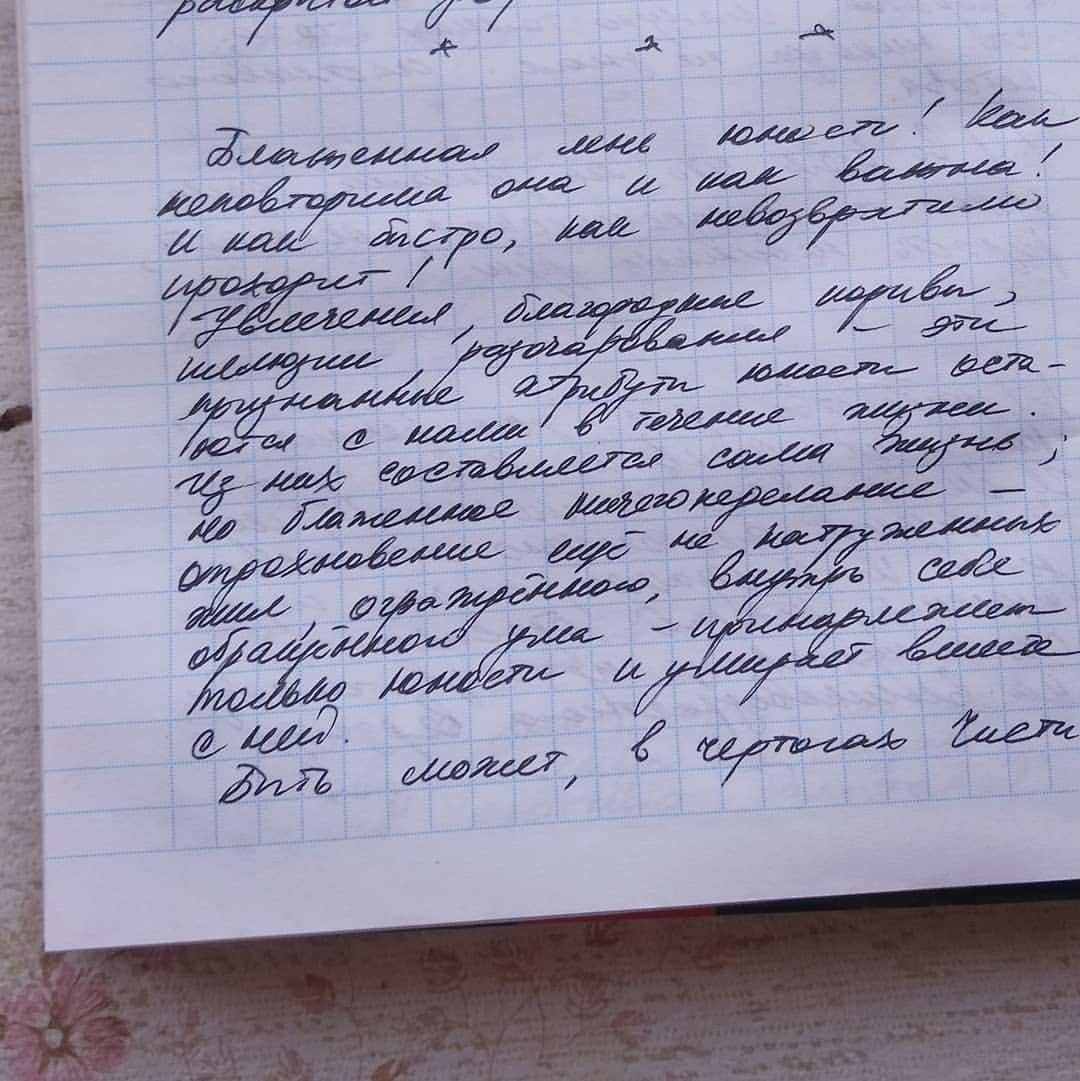 * * *
Блаженная лень юности! Как
неповторима она и как важна!
И как быстро, как невозвратимо
проходит!
Увлечения, благородные порывы,
иллюзии, разочарования – эти
признанные атрибуты юности оста-
ются с нами в течение жизни.
Из них составляется сама жизнь;
но блаженное ничегонеделание –
отдохновение ещё не натруженных
жил, ограждённого, внутрь себе
обращённого ума – принадлежит
только юности и умирает вместе
с ней.
Быть может, в чертогах Чисти